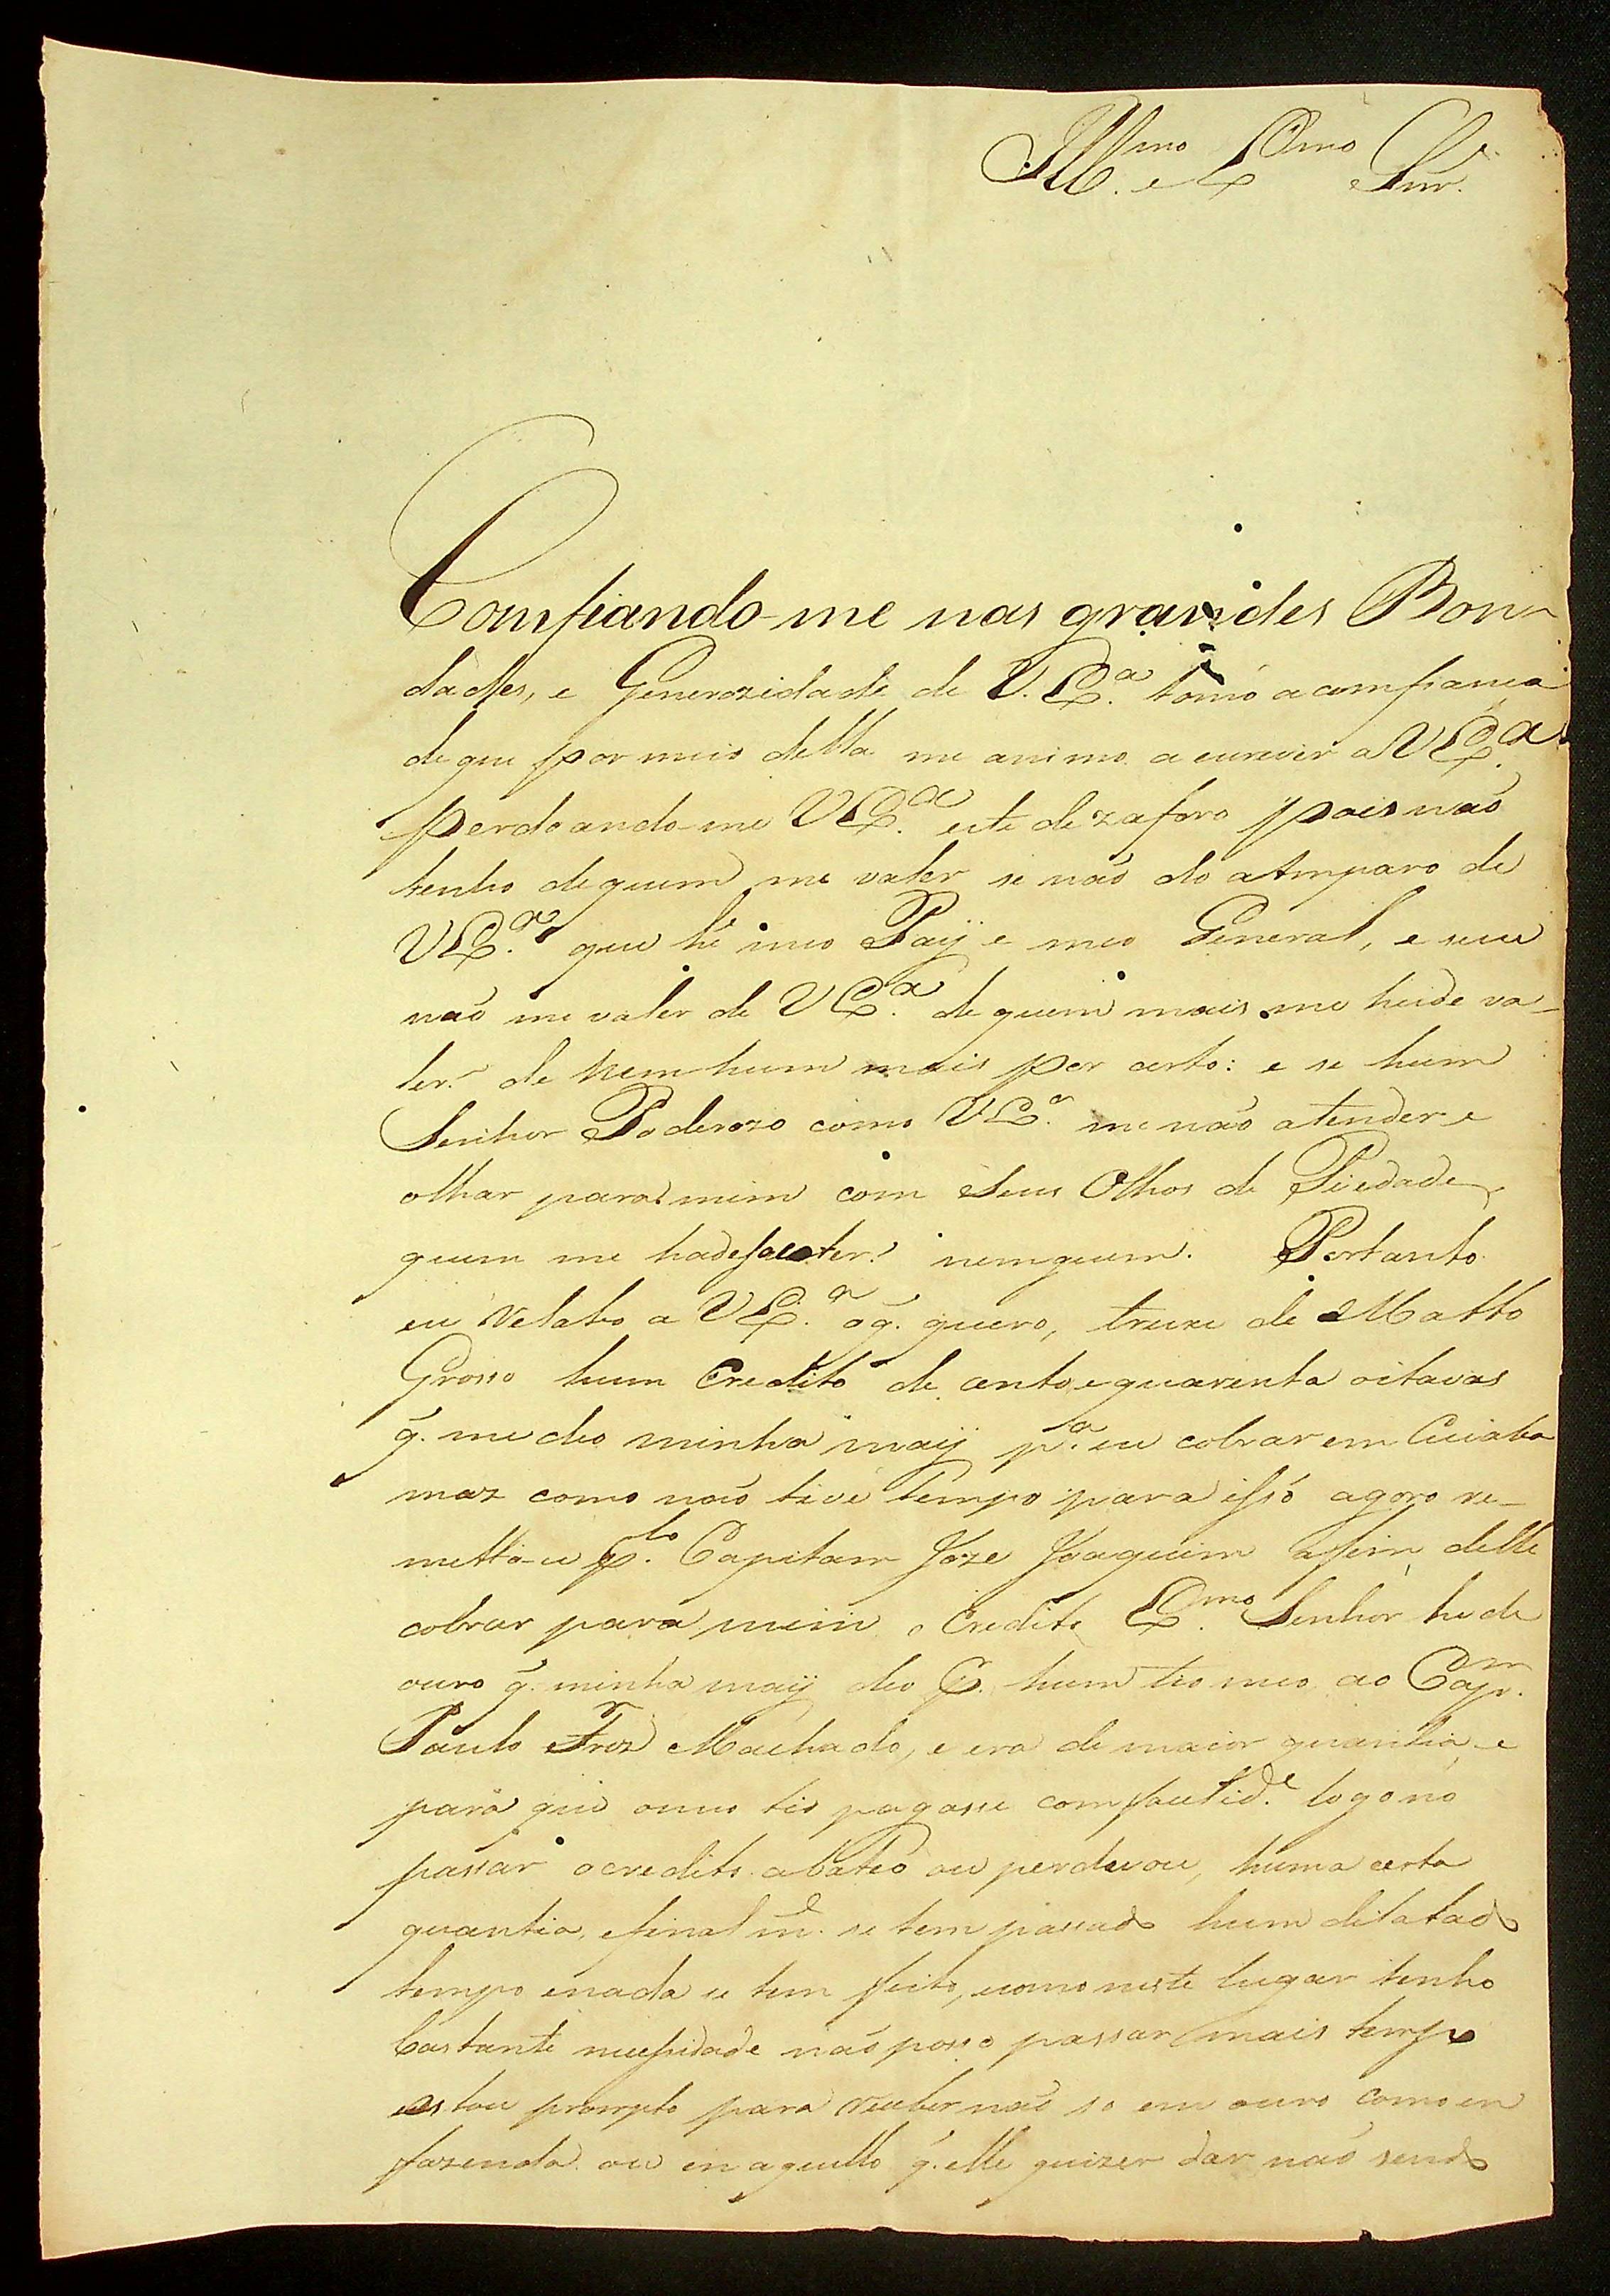 Ill.mo e Ex.mo Snr.
Comfiando-me nas grandes Bon-
dades, e Generozidade de V. Ex.a tomo a comfianca
de que por meio della me animo a escrever a V Ex.a
perdoando-me V Ex.a este dezaforo pois não
tenho de quem me valer se não do atmparo de
V Ex.a que hé meo Paÿ e meo General, e se eu
não me valer de V Ex.a de quem mais me heide va-
ler? de nemhum mais por certo: e se hum
Senhor Poderozo como V Ex.a me não atender e
olhar para mim com Seus Olhos de Piedade,
quem me hade fazer? nemguem. Portanto
eu Relato a V Ex.a o q. quero, truxe de Matto
Grosso hum Credito de cento e quarenta oitavas
q. me deo minha maÿ p.a eu cobrar em Cuiaba
maz como não tive tempo para isso agora re-
metto-o p.lo Capitam Joze Joaquim afim delle
cobrar para mim, o Credito Ex.mo Senhor he de
ouro q. minha maÿ deo p. hum tio meo ao Cap.m
Paulo Frz Machado, e era de maior quantia, e
para que o meo tio pagasse com facelid.e logo no
passar o credito abateo ou perduou, huma certa
quantia, e final m.e se tem passado hum dilatado
tempo e nada se tem feito, e como neste lugar tenho
bastante nessesidade não posso passar mais tempo
estou prompto para receber não so em ouro como em
fazenda ou em aquillo q. elle quizer dar não sendo